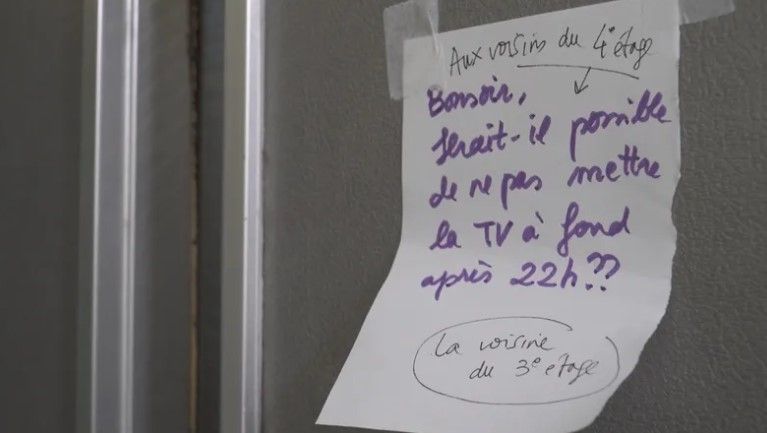 Aux voisins du 4° étage
Bonsoir,
Serait-il possible
de ne pas mettre
la TV à fond
après 22h??
La voisine
du 3e étage